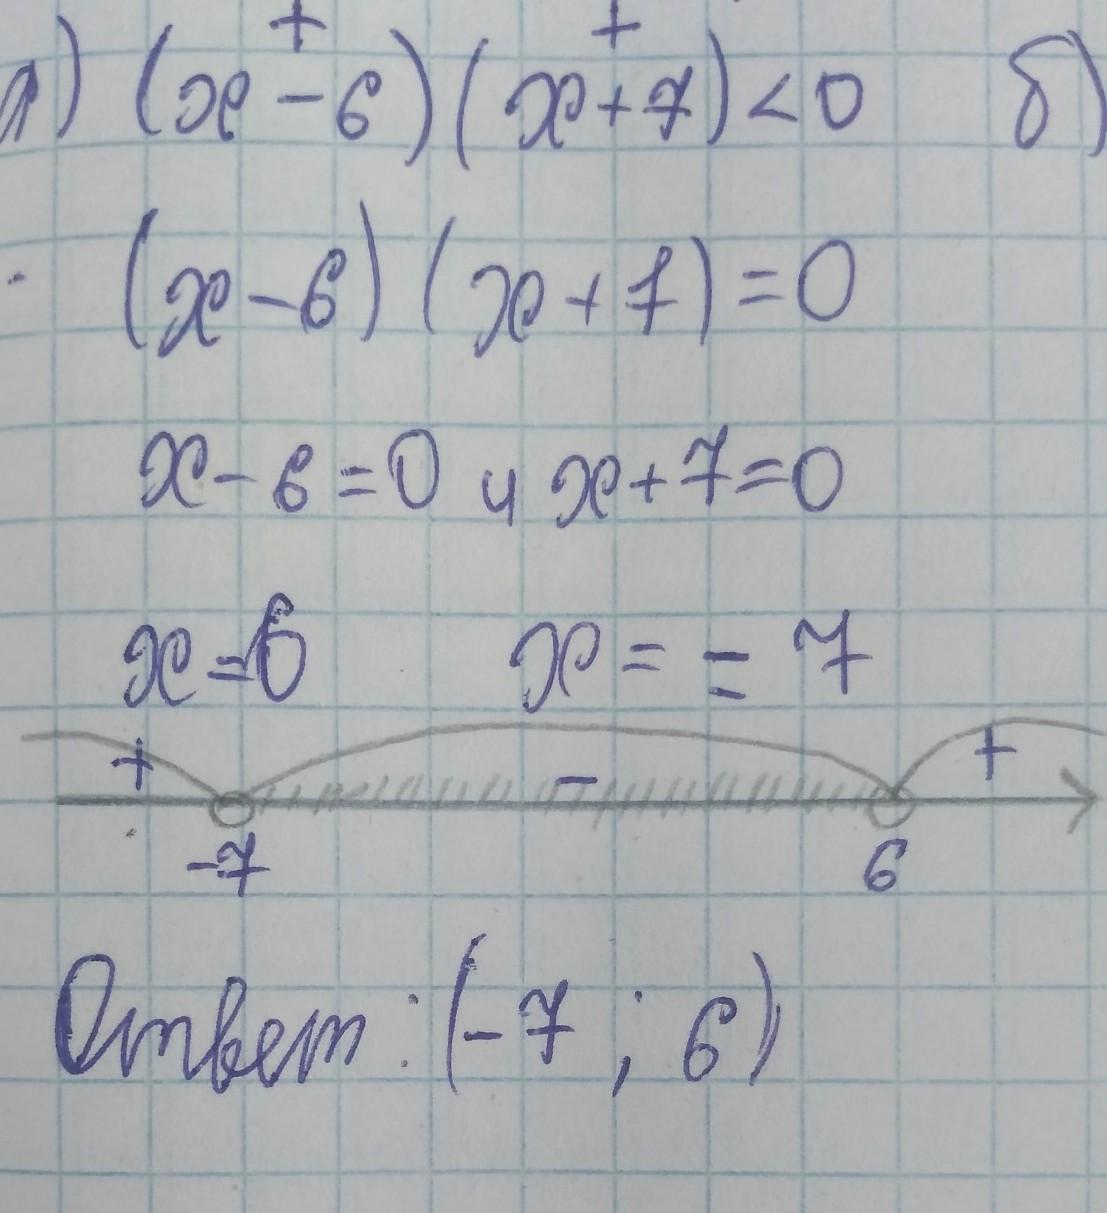 + +
а) (x - 6) (x + 7) < 0 б)
(x - 6) (x + 7) = 0
x - 6 = 0 и x + 7 = 0
x = 6 x = - 7
+ - +
-7 6
Ответ: (-7 ; 6)